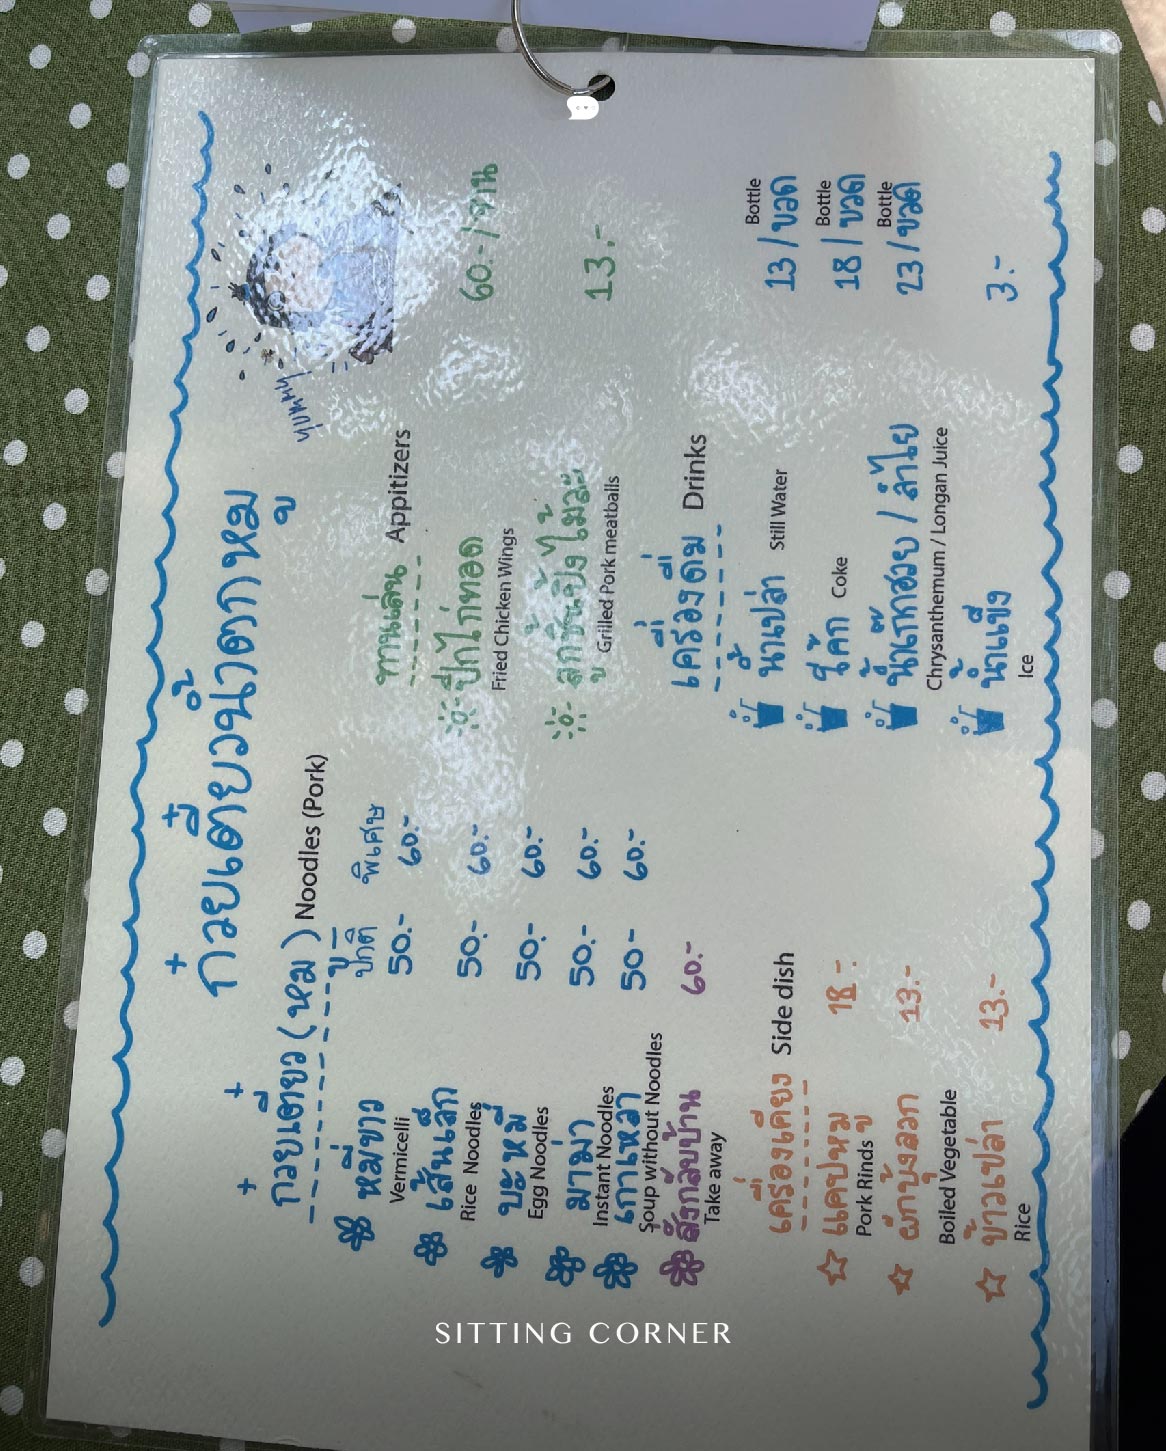 ก๋วยเตี๋ยวน้ำตกหมู
yummy
ก๋วยเตี๋ยว (หมู) Noodles (Pork)
ปกติ พิเศษ
หมี่ขาว 50.- 60.-
Vermicelli
เส้นเล็ก 50.- 60.-
Rice Noodles
บะหมี่ 50.- 60.-
Egg Noodles
มาม่า 50.- 60.-
Instant Noodles
เกาเหลา 50- 60.-
Soup without Noodles
สั่งกลับบ้าน 60.-
Take away
เครื่องเคียง Side dish
แคปหมู 18.-
Pork Rinds
ผักบุ้งลวก 13.-
Boiled Vegetable
ข้าวเปล่า 13.-
Rice
ทานเล่น Appitizers
ปีกไก่ทอด 60.-/จาน
Fried Chicken Wings
ลูกชิ้นปิ้งไม้ละ 13.-
Grilled Pork meatballs
เครื่องดื่ม Drinks
น้ำเปล่า Still Water 13/ขวด Bottle
โค้ก Coke 18/ขวด Bottle
น้ำเก๊กฮวย/ลำไย 23/ขวด Bottle
Chrysanthemum / Longan Juice
น้ำแข็ง 3.-
Ice
SITTING CORNER